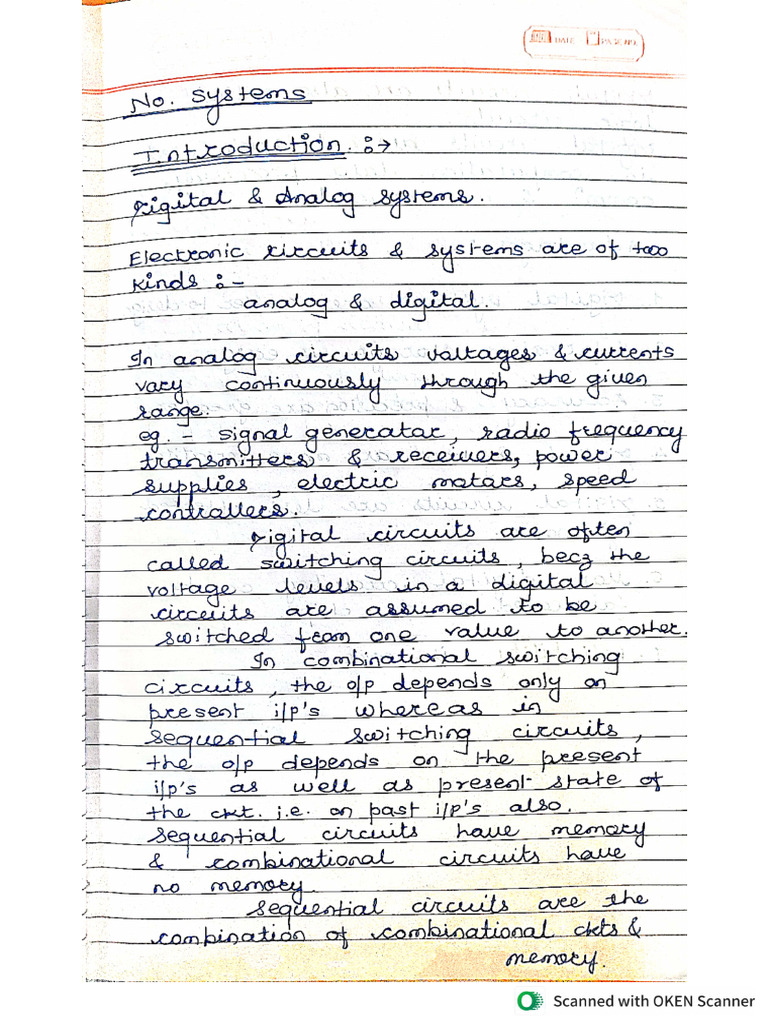 DATE
No. systems
Introduction :→
Digital & Analog systems.
Electronic circuits & systems are of two
kinds :-
analog & digital.
In analog circuits voltages & currents
vary continuously through the given
range.
eg. - signal generator, radio frequency
transmitters & receivers, power
supplies, electric motors, speed
controllers.
Digital circuits are often
called switching circuits, becz the
voltage levels in a digital
circuits are assumed to be
switched from one value to another.
In combinational switching
circuits, the o/p depends only on
present i/p's whereas in
sequential switching circuits,
the o/p depends on the present
i/p's as well as present state of
the ckt. i.e. on past i/p's also.
sequential circuits have memory
& combinational circuits have
no memory.
sequential circuits are the
combination of combinational ckts &
memory.
Scanned with OKEN Scanner